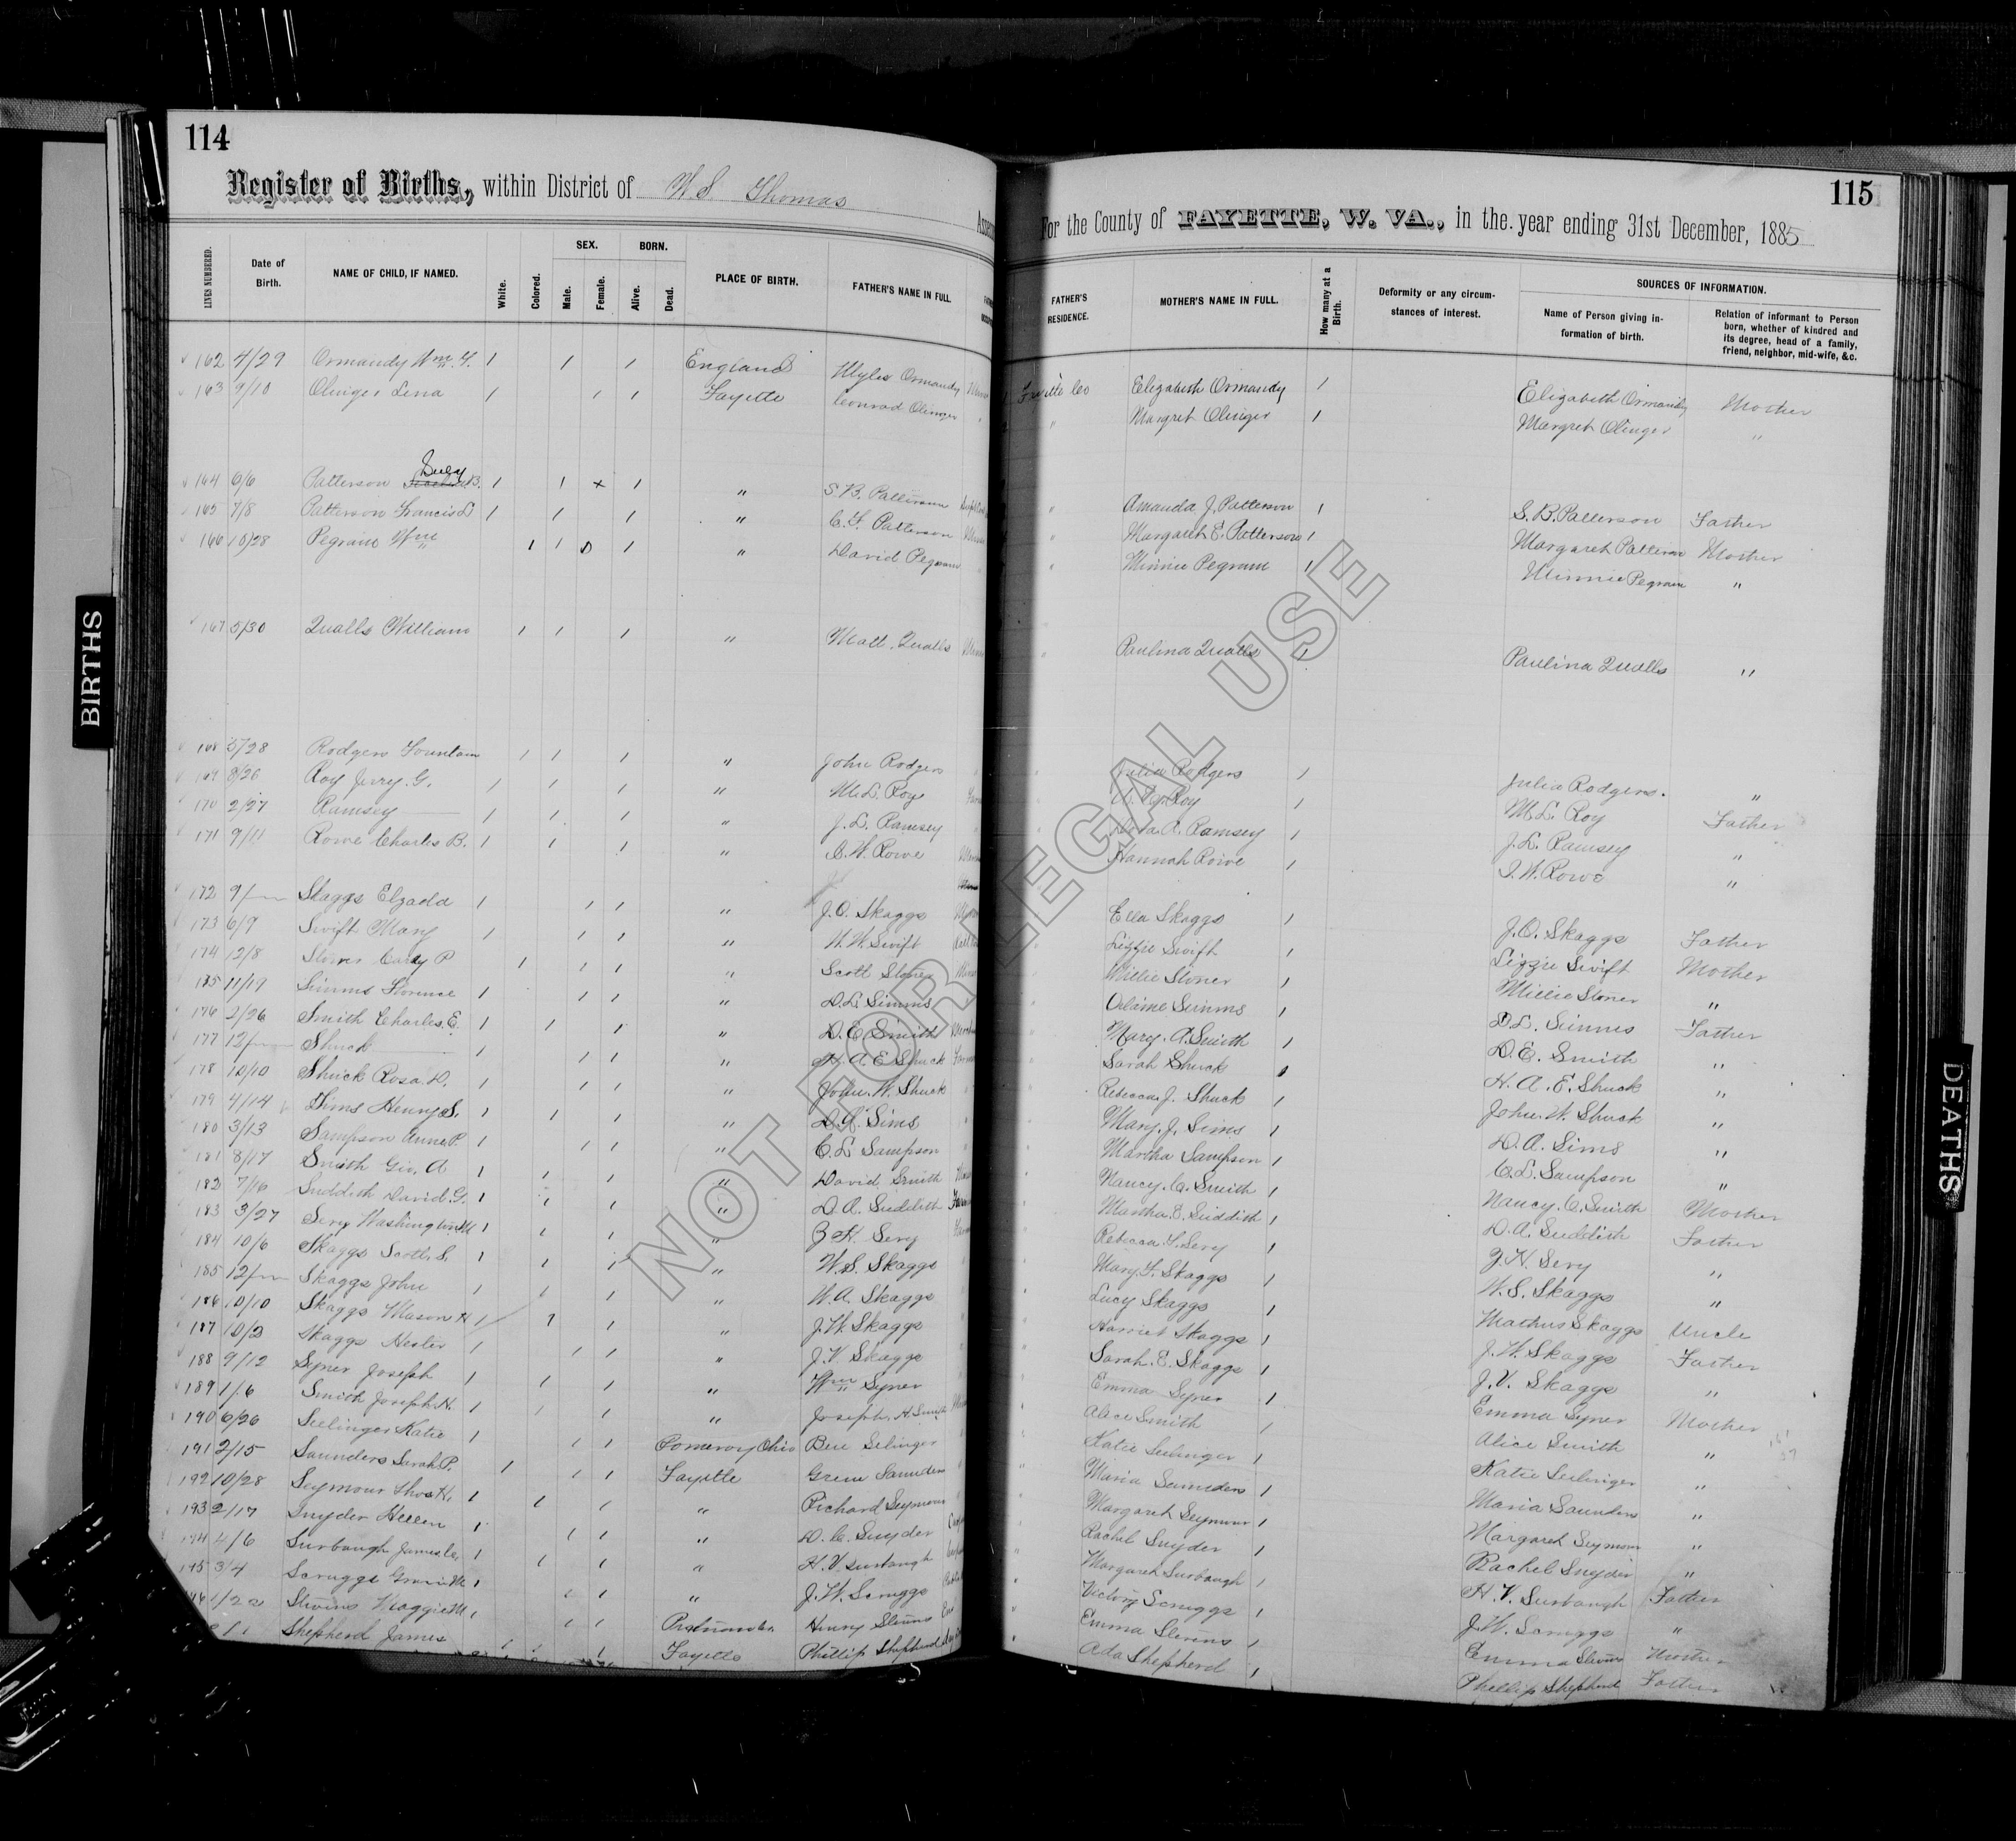 114
Register of Births, within District of W. S. Thomas
LINES NUMBERED. Date of Birth. NAME OF CHILD, IF NAMED. White. Colored. SEX. Male. Female. BORN. Alive. Dead. PLACE OF BIRTH. FATHER'S NAME IN FULL.
162 4/29 Ormandy Wm. 1 1 1 England Myles Ormandy
163 9/10 Olinger Lena 1 1 1 Fayette Conrad Olinger
164 6/6 Patterson B. 1 1 x 1 " S. B. Patterson
165 7/8 Patterson Francis L 1 1 1 " C. F. Patterson
166 10/28 Pegram Wm 1 1 1 " David Pegram
167 5/30 Qualls William 1 1 1 " Matt. Qualls
168 5/28 Rodgers Fountain 1 1 1 " John Rodgers
169 8/26 Roy Jerry. G. 1 1 1 " M. L. Roy
170 2/27 Ramsey 1 1 1 " J. L. Ramsey
171 9/11 Rowe Charles B. 1 1 1 " C. W. Rowe
172 9/ Skaggs Elzada 1 1 1 " J. O. Skaggs
173 6/9 Swift Mary 1 1 1 " W. W. Swift
174 12/8 P 1 1 1 " Scott Stoner
175 11/19 Simms Florence 1 1 1 " D. L. Simms
176 2/26 Smith Charles. E. 1 1 1 " D. E. Smith
177 12/ Shuck 1 1 1 " H. A. E. Shuck
178 10/10 Shuck Rosa. D. 1 1 1 " John. W. Shuck
179 4/14 Sims Henry S. 1 1 1 " D. A. Sims
180 3/13 Sampson Anna P. 1 1 1 " C. L. Sampson
181 8/17 Smith Geo. A 1 1 1 " David Smith
182 7/16 Suddith David. G. 1 1 1 " D. A. Suddith
183 3/27 Sevy Washington 1 1 1 " Sevy
184 10/6 Skaggs Scott. S. 1 1 1 " W. S. Skaggs
185 12/ Skaggs John 1 1 1 " W. A. Skaggs
186 10/10 Skaggs Mason H 1 1 1 " J. W. Skaggs
187 10/2 Skaggs Hester 1 1 1 " J. V. Skaggs
188 9/12 Syner Joseph 1 1 1 " Wm Syner
189 1/6 Smith Joseph. H. 1 1 1 " Joseph. H. Smith
190 6/26 Seelinger Katie 1 1 1 Pomeroy Ohio Ben Selinger
191 2/15 Saunders Sarah P. 1 1 1 Fayette Green Saunders
192 10/28 Seymour Thos H. 1 1 1 " Richard Seymour
193 2/17 Snyder Hellen 1 1 1 " D. C. Snyder
194 4/6 Surbaugh James C. 1 1 1 " H. V. Surbaugh
195 3/4 Scruggs 1 1 1 " J. W. Scruggs
1/22 Stevens Maggie M 1 1 1 Henry Stevens
Shepherd James Fayette Phillip Shepherd
115
For the County of FAYETTE, W. VA., in the year ending 31st December, 1885
FATHER'S RESIDENCE. MOTHER'S NAME IN FULL. How many at a Birth. Deformity or any circumstances of interest. SOURCES OF INFORMATION. Name of Person giving information of birth. Relation of informant to Person born, whether of kindred and its degree, head of a family, friend, neighbor, mid-wife, &c.
Fayette Co Elizabeth Ormandy 1 Elizabeth Ormandy Mother
" Margret Olinger 1 Margret Olinger "
" Amanda J. Patterson 1 S. B. Patterson Father
" Margaret E. Patterson 1 Margaret Patterson Mother
" Minnie Pegram 1 Minnie Pegram "
" Paulina Qualls 1 Paulina Qualls "
" Julia Rodgers 1 Julia Rodgers. "
" Roy 1 M. L. Roy Father
" A. Ramsey 1 J. L. Ramsey "
" Hannah Rowe 1 W. Rowe "
" Ella Skaggs 1 J. O. Skaggs Father
" Lizzie Swift 1 Lizzie Swift Mother
" Millie Stoner 1 Millie Stoner "
" Simms 1 D. L. Simms Father
" Mary. A. Smith 1 D. E. Smith "
" Sarah Shuck 1 H. A. E. Shuck "
" Rebecca. J. Shuck 1 John. W. Shuck "
" Mary. J. Sims 1 D. A. Sims "
" Martha Sampson 1 C. L. Sampson "
" Nancy. C. Smith 1 Nancy. C. Smith Mother
" Martha. E. Suddith 1 D. A. Suddith Father
" Rebecca. Sevy 1 Sevy "
" Mary. F. Skaggs 1 W. S. Skaggs "
" Lucy Skaggs 1 Mathus Skaggs Uncle
" Harriet Skaggs 1 J. W. Skaggs Father
" Sarah. E. Skaggs 1 J. V. Skaggs "
" Emma Syner 1 Emma Syner Mother
" Alice Smith 1 Alice Smith "
" Katie Seelinger 1 Katie Seelinger "
" Maria Saunders 1 Maria Saunders "
" Margaret Seymour 1 Margaret Seymour "
" Rachel Snyder 1 Rachel Snyder "
" Margaret Surbaugh 1 H. V. Surbaugh Father
" Victory Scruggs 1 J. W. Scruggs "
" Emma Stevens 1 Emma Stevens Mother
" Ada Shepherd 1 Phillip Shepherd Father
BIRTHS
DEATHS
NOT FOR LEGAL USE